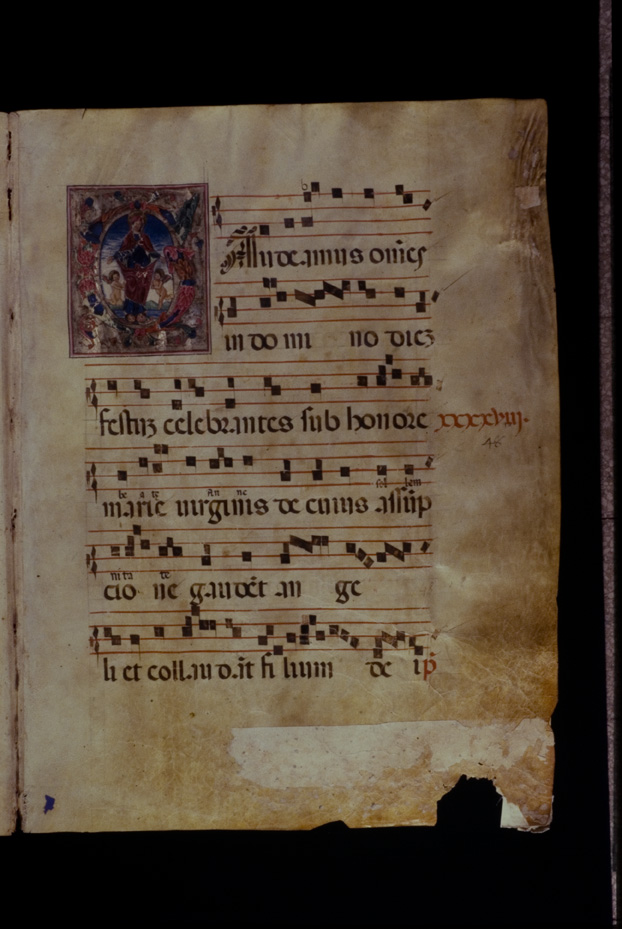 Gaudeamus om̄es
in do mi no diez
festuz celebrantes sub honore xxxxviii.
48
be a te An ne sol lem
marie uirginis de cuius assūp
nita te
cio ne gaudēt an ge
li et collaudāt fi lium de ip̄